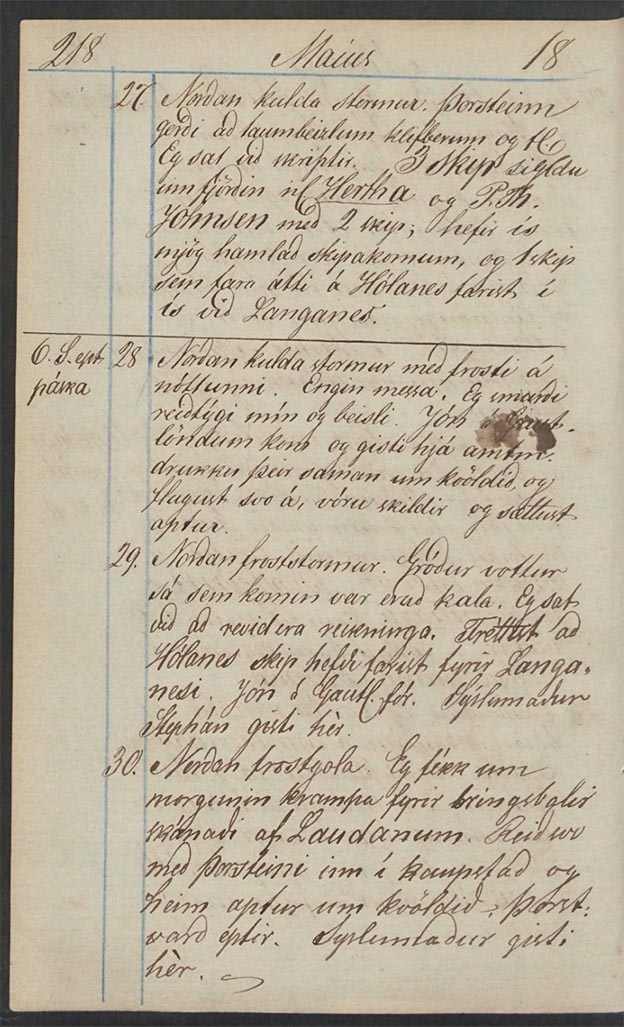 218 Maius 18
27 Nordan kulda stormur. Þorsteinn
gerdi ad taumbeizlum klifberum og fl.
Eg sat vid skriptir. 3 skip sigldu
inn fjördin nl Hertha og P. Th.
Johnsen med 2 skip; hefir ís
mjög hamlad skipakomum, og 1 skip
sem fara átti á Hólanes farist í
ís vid Langanes.
6. S. ept. 28 Nordan kulda stormur med frosti á
páska nóttunni. Engin messa. Eg smurdi
reidtýgi mín og beisli. Jón á Gaut-
löndum kom og gisti hjá amtm.
drukku þeir saman um kvöldid, og
flugust svo á, vóru skildir og sættust
aptur.
29. Nordan froststormur. Gródur vottur
sá sem komin var er ad kala. Eg sat
vid ad revidera reikninga. Fréttist ad
Hólanes skip hefdi farist fyrir Langa-
nesi. Jón á Gautl. fór. Sýslumadur
Stephán gisti hèr.
30. Nordan frostgola. Eg fékk um
morgunin krampa fyrir bringsbalir
skánadi af Laudanum. Reid svo
med Þorsteini inn í kaupstad og
heim aptur um kvöldid, Þorst:
vard eptir. Syslumadur gisti
hèr.